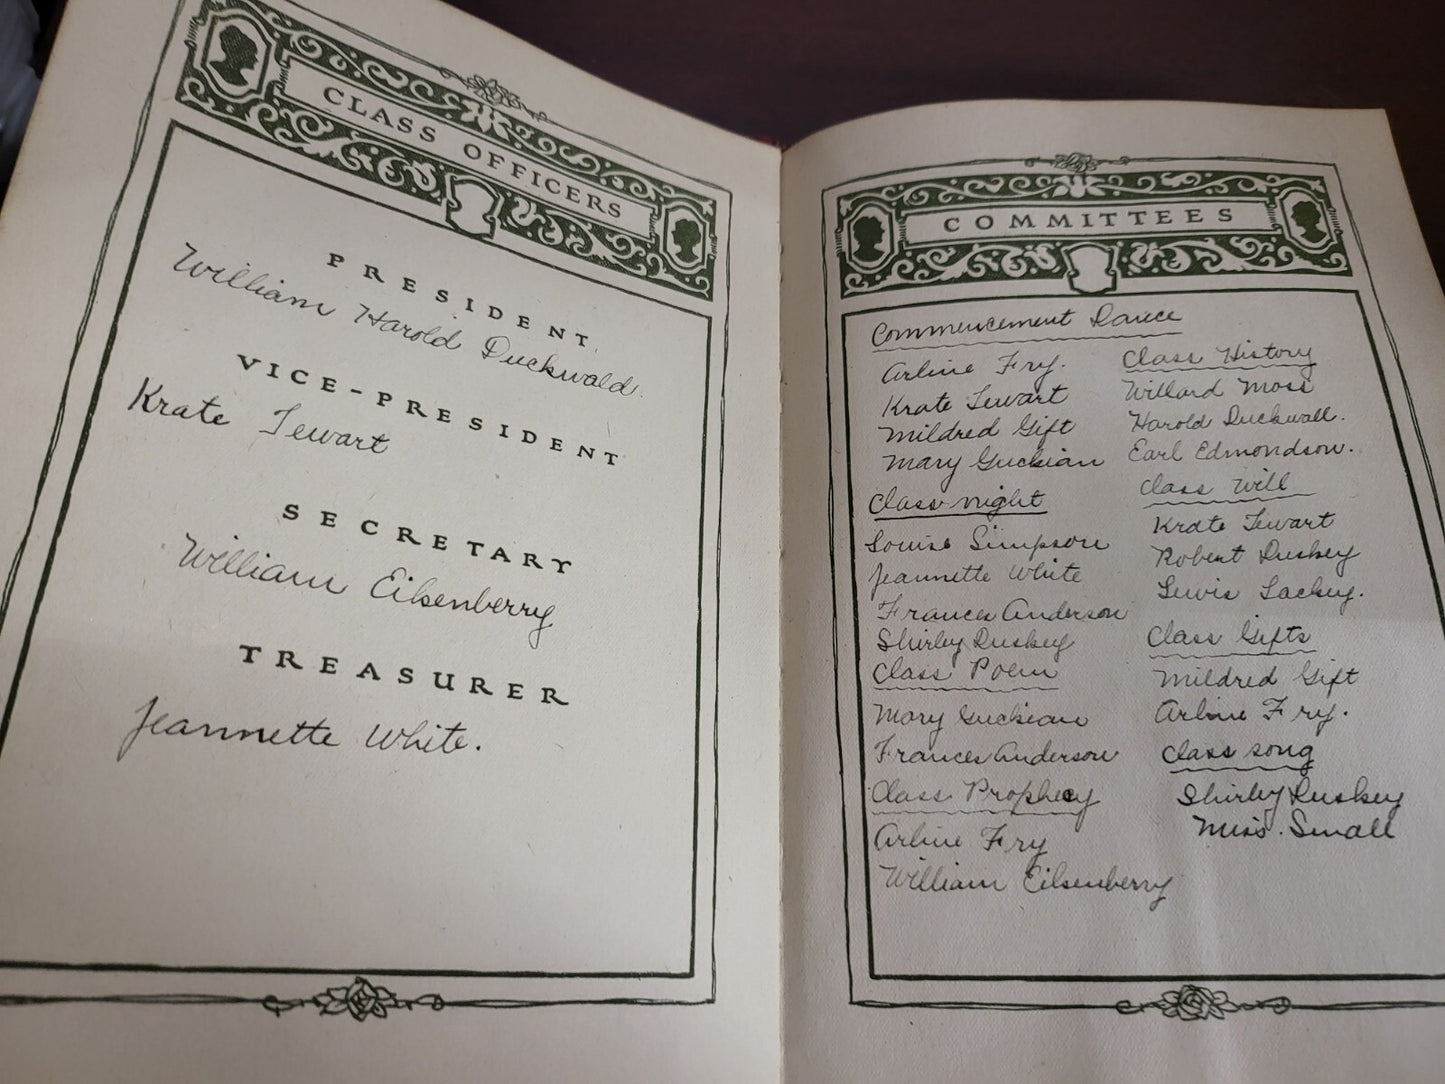 CLASS OFFICERS
PRESIDENT
William Harold Duckwald.
VICE-PRESIDENT
Krate Tewart
SECRETARY
William Eilsenberry
TREASURER
Jeannette White.
COMMITTEES
Commencement Dance
Arline Fry.
Krate Tewart
Mildred Gift
Mary Guckian
Class night
Louise Simpson
Jeannette White
Frances Anderson
Shirley Duskey
Class Poem
Mary Guckian
Frances Anderson
Class Prophecy
Arline Fry
William Eilsenberry
Class History
Willard Moss
Harold Duckwall.
Earl Edmondson.
Class Will
Krate Tewart
Robert Duskey
Lewis Lackey.
Class Gifts
Mildred Gift
Arline Fry.
Class song
Shirley Duskey
Miss. Small